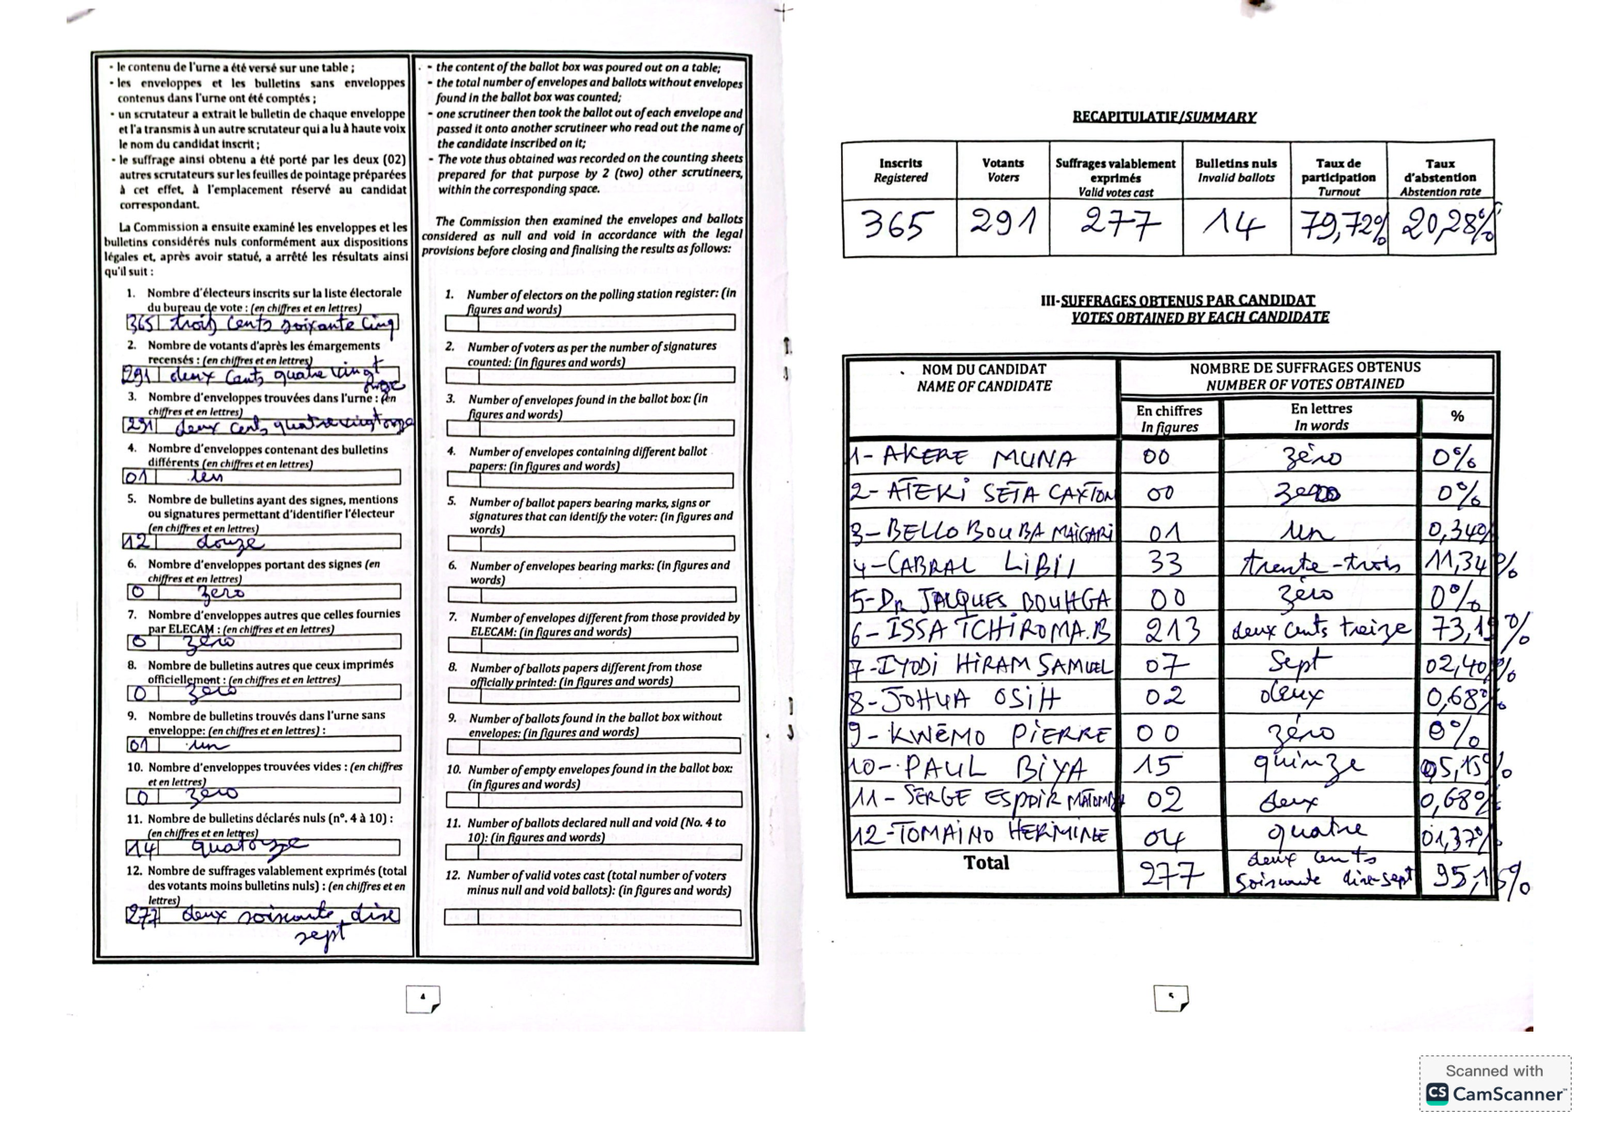 - le contenu de l'urne a été versé sur une table ;
- les enveloppes et les bulletins sans enveloppes
contenus dans l'urne ont été comptés ;
- un scrutateur a extrait le bulletin de chaque enveloppe
et l'a transmis à un autre scrutateur qui a lu à haute voix
le nom du candidat inscrit ;
- le suffrage ainsi obtenu a été porté par les deux (02)
autres scrutateurs sur les feuilles de pointage préparées
à cet effet, à l'emplacement réservé au candidat
correspondant.
La Commission a ensuite examiné les enveloppes et les
bulletins considérés nuls conformément aux dispositions
légales et, après avoir statué, a arrêté les résultats ainsi
qu'il suit :
1. Nombre d'électeurs inscrits sur la liste électorale
du bureau de vote : (en chiffres et en lettres)
365 trois cents soixante cinq
2. Nombre de votants d'après les émargements
recensés : (en chiffres et en lettres)
291 deux cents quatre vingt
onze
3. Nombre d'enveloppes trouvées dans l'urne : (en
chiffres et en lettres)
291 deux cents quatre vingt onze
4. Nombre d'enveloppes contenant des bulletins
différents (en chiffres et en lettres)
01 un
5. Nombre de bulletins ayant des signes, mentions
ou signatures permettant d'identifier l'électeur
(en chiffres et en lettres)
12 douze
6. Nombre d'enveloppes portant des signes (en
chiffres et en lettres)
0 zéro
7. Nombre d'enveloppes autres que celles fournies
par ELECAM : (en chiffres et en lettres)
0 zéro
8. Nombre de bulletins autres que ceux imprimés
officiellement : (en chiffres et en lettres)
0 zéro
9. Nombre de bulletins trouvés dans l'urne sans
enveloppe: (en chiffres et en lettres) :
01 un
10. Nombre d'enveloppes trouvées vides : (en chiffres
et en lettres)
0 zéro
11. Nombre de bulletins déclarés nuls (n°. 4 à 10) :
(en chiffres et en lettres)
14 quatorze
12. Nombre de suffrages valablement exprimés (total
des votants moins bulletins nuls) : (en chiffres et en
lettres)
277 deux soixante dix
sept
- the content of the ballot box was poured out on a table;
- the total number of envelopes and ballots without envelopes
found in the ballot box was counted;
- one scrutineer then took the ballot out of each envelope and
passed it onto another scrutineer who read out the name of
the candidate inscribed on it;
- The vote thus obtained was recorded on the counting sheets
prepared for that purpose by 2 (two) other scrutineers,
within the corresponding space.
The Commission then examined the envelopes and ballots
considered as null and void in accordance with the legal
provisions before closing and finalising the results as follows:
1. Number of electors on the polling station register: (in
figures and words)
2. Number of voters as per the number of signatures
counted: (in figures and words)
3. Number of envelopes found in the ballot box: (in
figures and words)
4. Number of envelopes containing different ballot
papers: (in figures and words)
5. Number of ballot papers bearing marks, signs or
signatures that can identify the voter: (in figures and
words)
6. Number of envelopes bearing marks: (in figures and
words)
7. Number of envelopes different from those provided by
ELECAM: (in figures and words)
8. Number of ballots papers different from those
officially printed: (in figures and words)
9. Number of ballots found in the ballot box without
envelopes: (in figures and words)
10. Number of empty envelopes found in the ballot box:
(in figures and words)
11. Number of ballots declared null and void (No. 4 to
10): (in figures and words)
12. Number of valid votes cast (total number of voters
minus null and void ballots): (in figures and words)
4
RECAPITULATIF/SUMMARY
Inscrits Votants Suffrages valablement Bulletins nuls Taux de Taux
Registered Voters exprimés Invalid ballots participation d'abstention
Valid votes cast Turnout Abstention rate
365 291 277 14 79,72% 20,28%
III-SUFFRAGES OBTENUS PAR CANDIDAT
VOTES OBTAINED BY EACH CANDIDATE
NOM DU CANDIDAT NOMBRE DE SUFFRAGES OBTENUS
NAME OF CANDIDATE NUMBER OF VOTES OBTAINED
En chiffres En lettres %
In figures In words
1- AKERE MUNA 00 zéro 0%
2- ATEKI SETA CAXTON 00 0%
3- BELLO BOUBA MAIGARI 01 un 0,34%
4- CABRAL LIBII 33 trente-trois 11,34%
5- Dr JACQUES BOUHGA 00 zéro 0%
6- ISSA TCHIROMA.B 213 deux cents treize 73,19%
7- IYODI HIRAM SAMUEL 07 Sept 02,40%
8- JOHUA OSIH 02 deux 0,68%
9- KWEMO PIERRE 00 zéro 0%
10- PAUL BIYA 15 quinze 05,15%
11- SERGE ESPOIR MATOMBA 02 deux 0,68%
12- TOMAINO HERMINE 04 quatre 01,37%
Total 277 deux cents
soixante dix-sept 95,15%
5
Scanned with
CS CamScanner